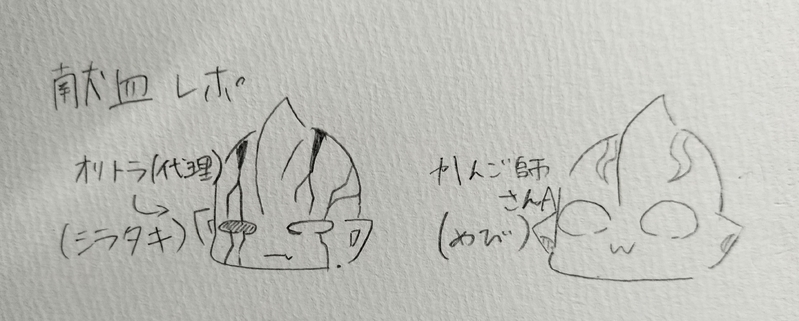 献血レポ
オリトラ(代理)
(シラタキ)
かんご師
さんA
(めび)